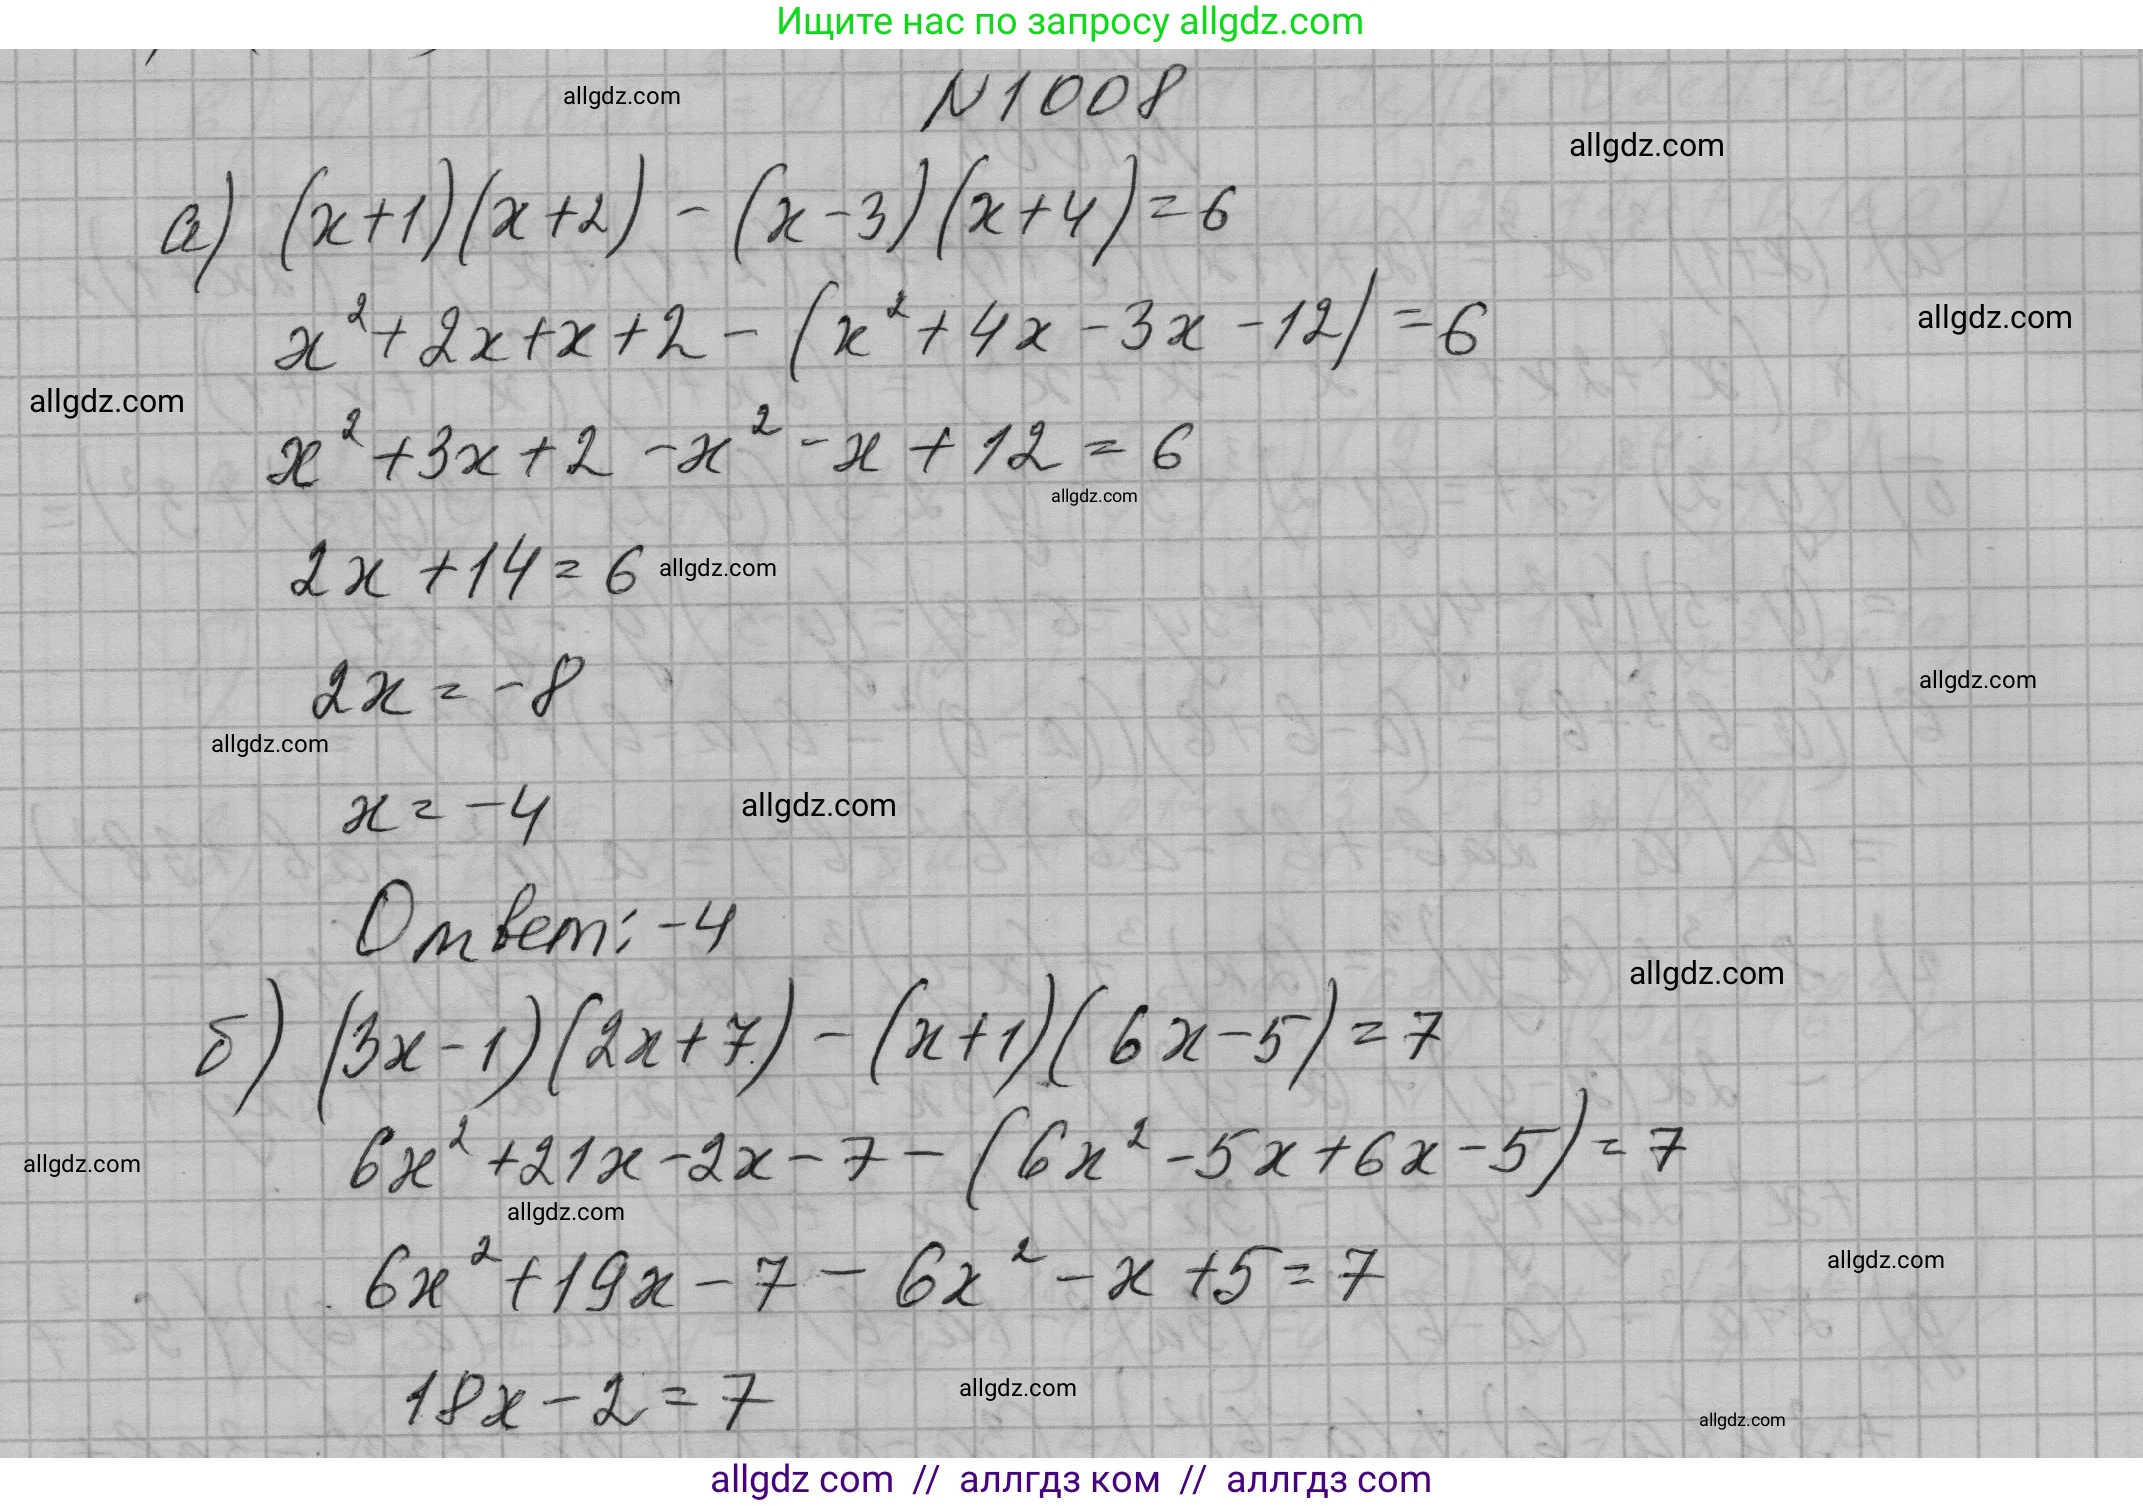 Ищите нас по запросу allgdz.com
N1008
allgdz.com
allgdz.com
а) (x+1)(x+2) - (x-3)(x+4) = 6
x² + 2x + x + 2 - (x² + 4x - 3x - 12) = 6
allgdz.com
allgdz.com
x² + 3x + 2 - x² - x + 12 = 6
allgdz.com
2x + 14 = 6
allgdz.com
2x = -8
allgdz.com
allgdz.com
x = -4
allgdz.com
Ответ: -4
allgdz.com
б) (3x-1)(2x+7) - (x+1)(6x-5) = 7
6x² + 21x - 2x - 7 - (6x² - 5x + 6x - 5) = 7
allgdz.com
allgdz.com
6x² + 19x - 7 - 6x² - x + 5 = 7
allgdz.com
18x - 2 = 7
allgdz.com
allgdz.com
allgdz com // аллгдз ком // аллгдз com